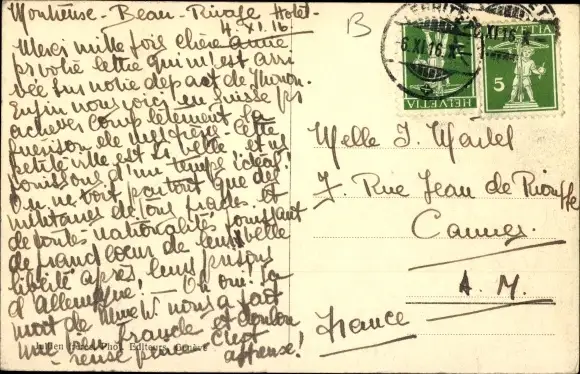 Montreux - Beau-Rivage Hotel -
4. XI. 16.
Merci mille fois chère amie
pr votre lettre qui m'est arri
vée sur notre départ de Thonon.
Enfin nous voici en Suisse pr
achever complètement la
guérison de ma chérie. Cette
petite ville est si belle et ns
jouissons d'un temps idéal!
On ne voit partout que des
militaires de tous grades et
de toutes nationalités jouissant
de grand cœur de leur belle
liberté après leurs prisons
d'Allemagne! Oh oui! la
mort de Mme W. nous a fait
une bien grande et doulou
reuse peine c'est
affreux!
B
6. XI. 16. X
XI. 16. X
HELVETIA
HELVETIA
5
Melle J. Martel
7. Rue Jean de Riouffe
Cannes.
A. M.
France
Jullien frères, Phot. Editeurs, Genève